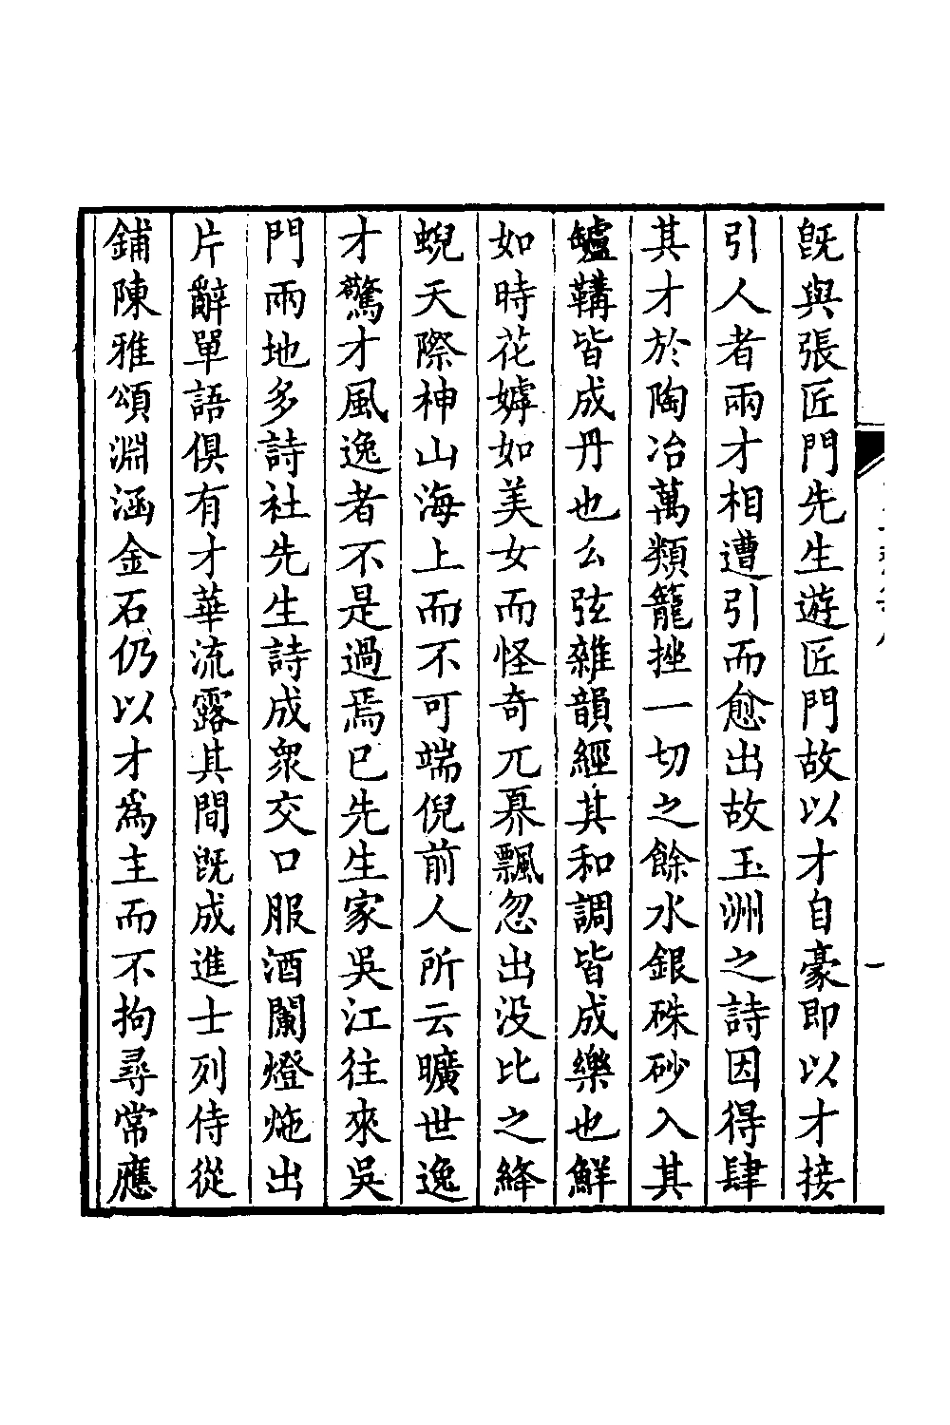 旣與張匠門先生遊匠門故以才自豪即以才接
引人者兩才相遭引而愈出故玉洲之詩因得肆
其才於陶冶萬類籠挫一切之餘水銀硃砂入其
鑪鞲皆成丹也么弦雜韻經其和調皆成樂也鮮
如時花嫭如美女而怪奇兀奡飄忽出没比之絳
蜺天際神山海上而不可端倪前人所云曠世逸
才驚才風逸者不是過焉已先生家吳江往來吳
門兩地多詩社先生詩成衆交口服酒闌燈灺出
片辭單語俱有才華流露其間旣成進士列侍從
鋪陳雅頌淵涵金石仍以才為主而不拘尋常應